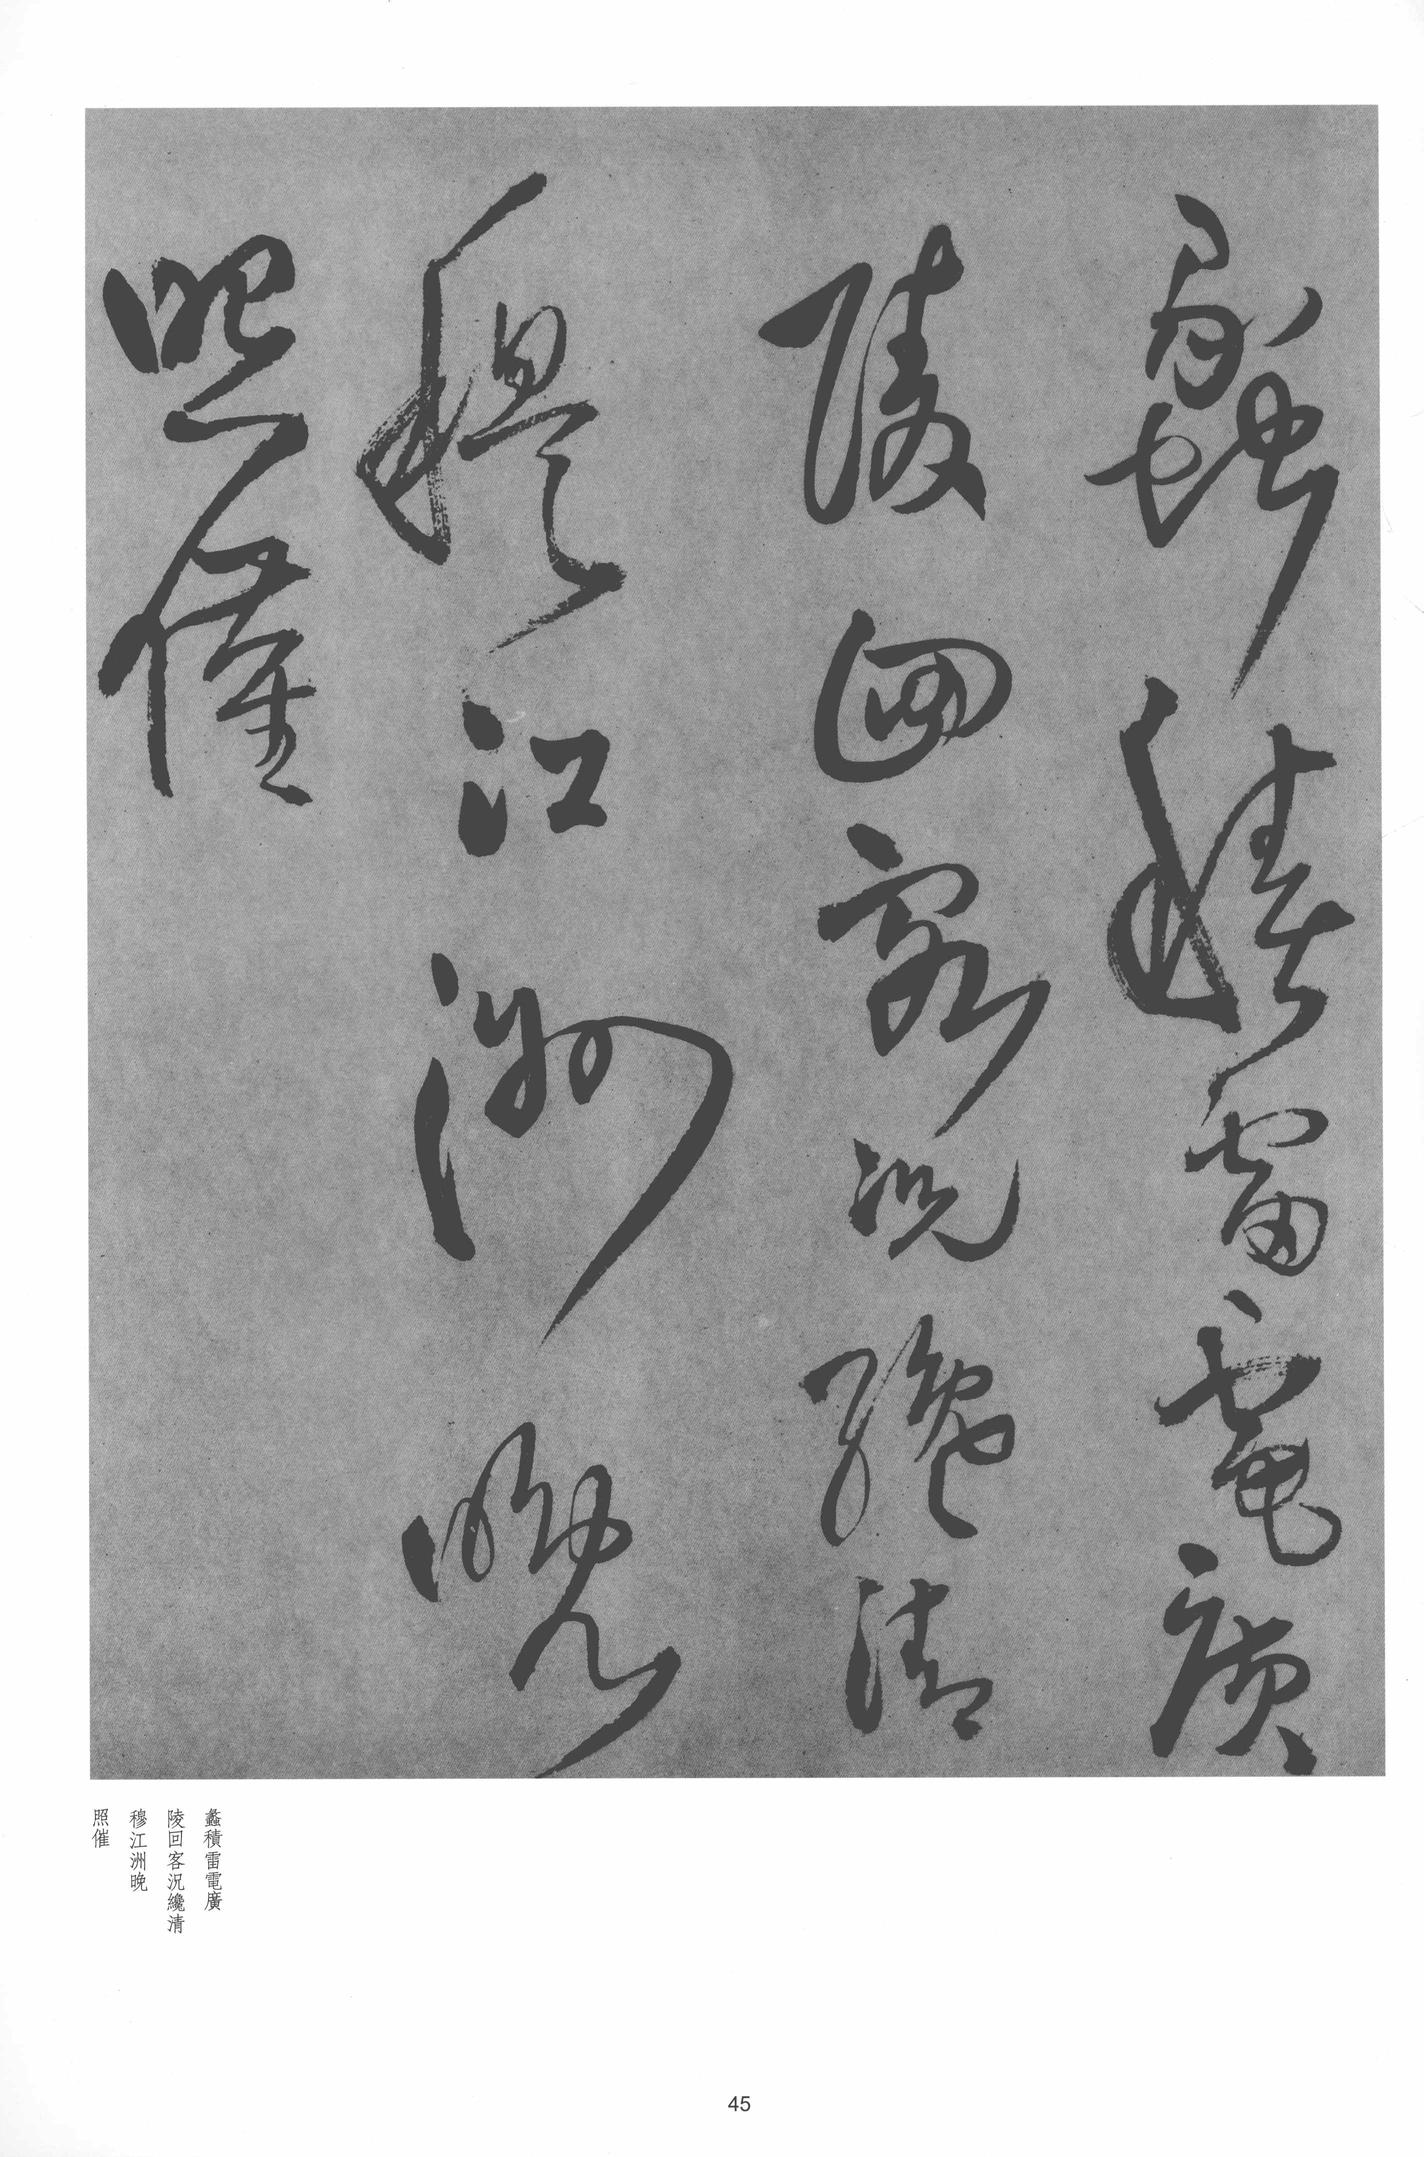 蠡積雷電廣
陵回客況纔清
穆江洲晚
照催
蠡積雷電廣
陵回客況纔清
穆江洲晚
照催
45